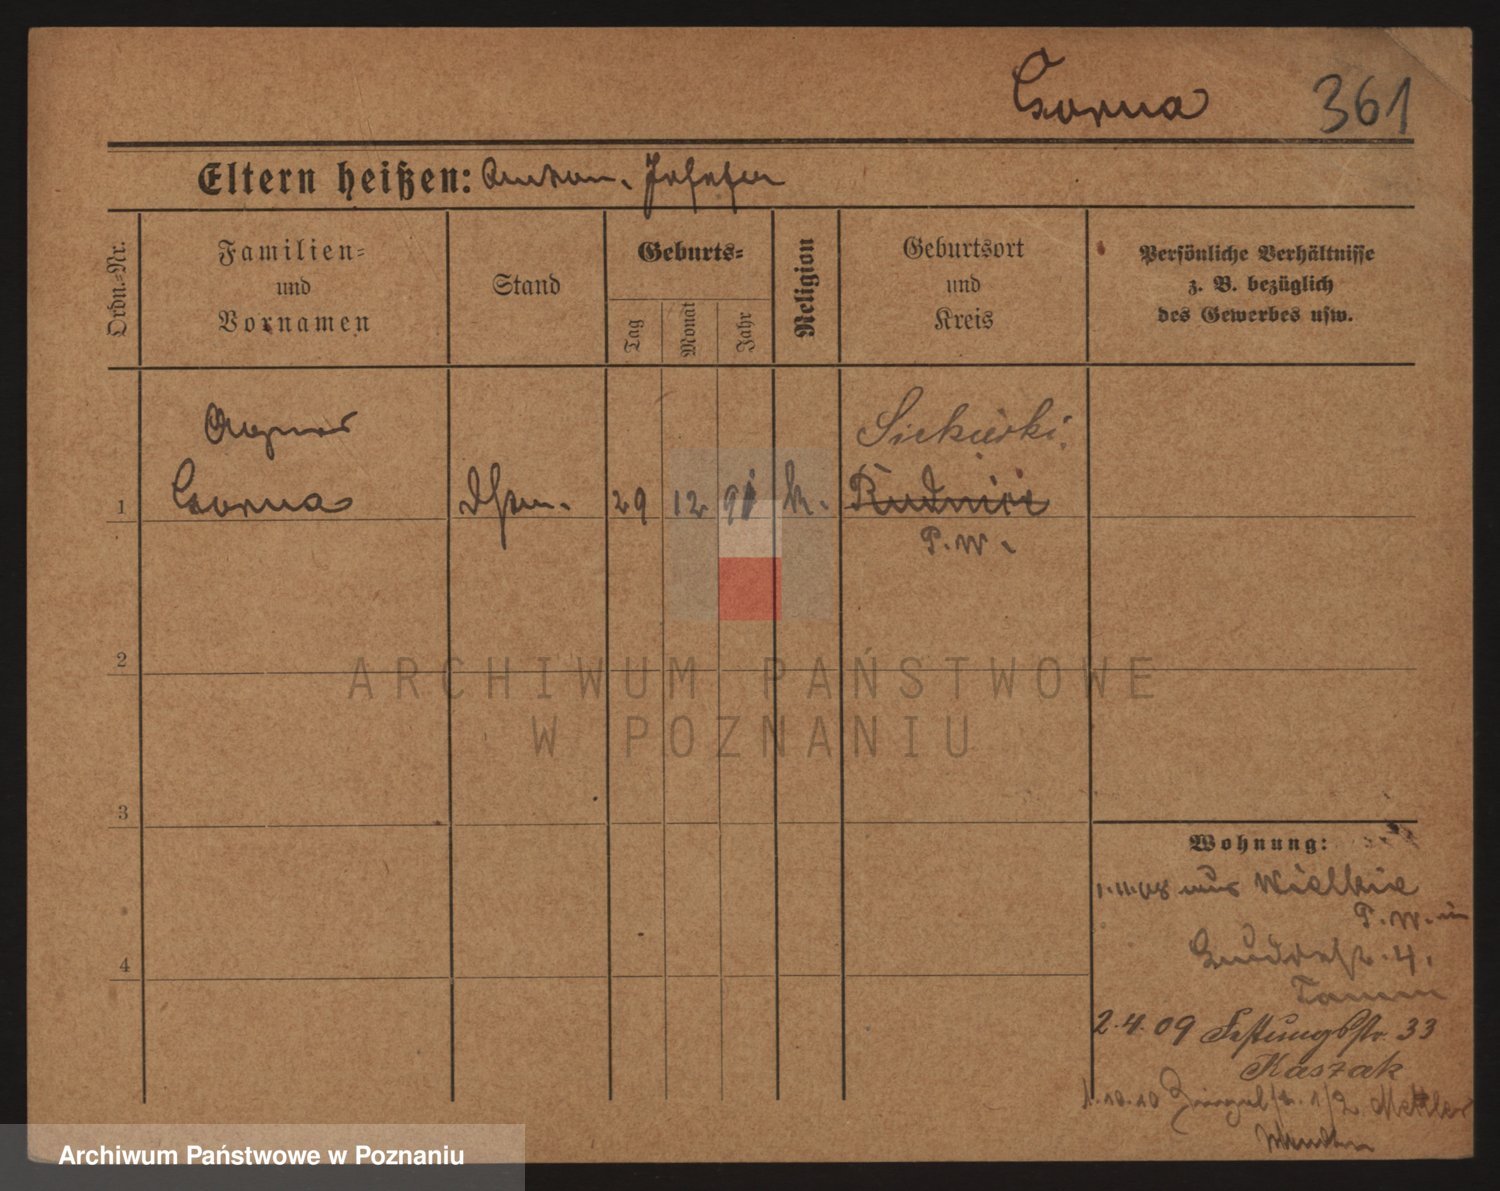 Gorna 361
Eltern heißen: Anton. Josefa
Ordn.-Nr.
Familien-
und
Vornamen
Stand
Geburts-
Tag
Monat
Jahr
Religion
Geburtsort
und
Kreis
Persönliche Verhältnisse
z. B. bezüglich
des Gewerbes usw.
Agnes
Siekierki
1 Gorna 29 12 91 k. Rudnicze
P. W.
2
3
4
Wohnung:
1.11.08 aus Wielkie
P. W. in
4.
Tamm
2.4.09 Festungsstr. 33
Kaszak
1.10.10 1/2
ARCHIWUM PAŃSTWOWE
W POZNANIU
Archiwum Państwowe w Poznaniu